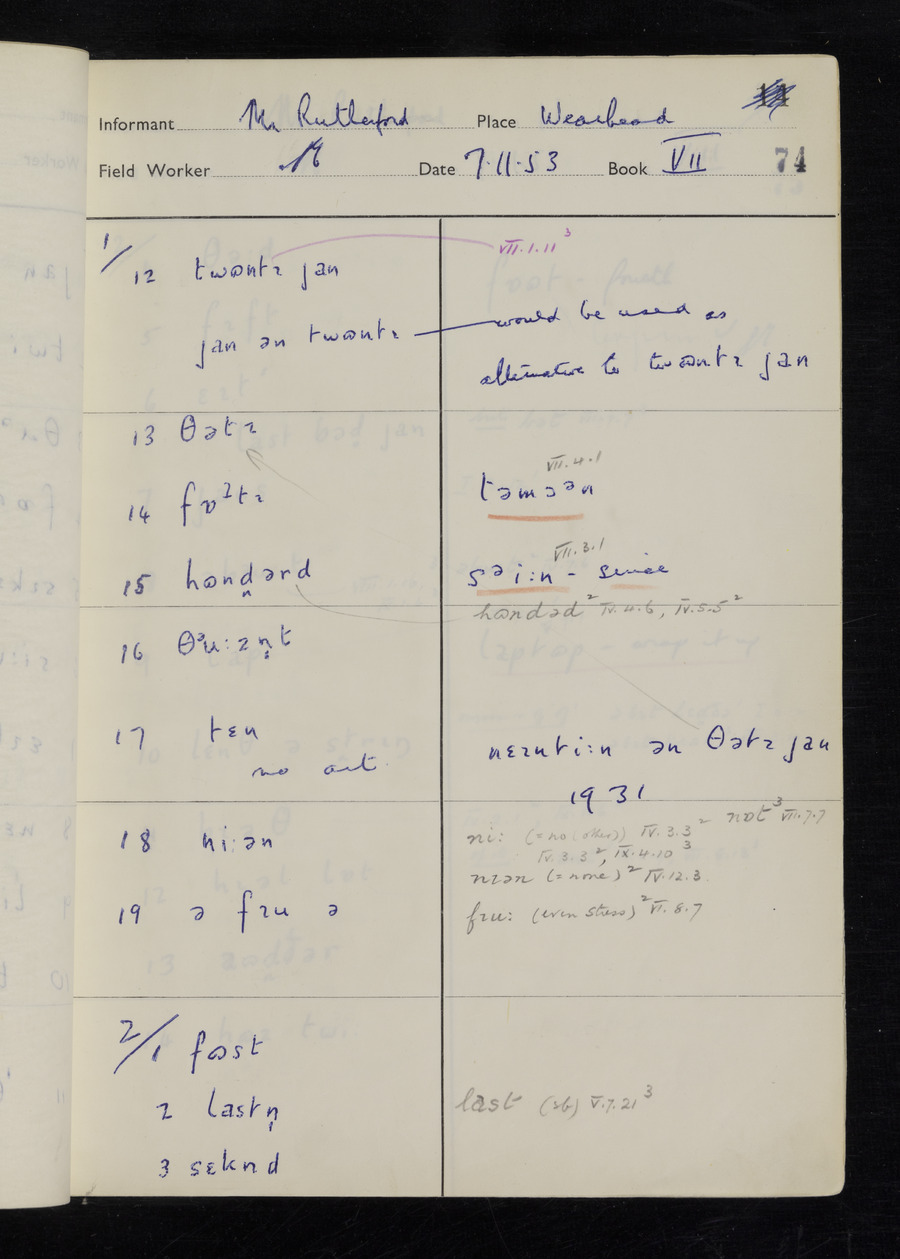 Informant Mr Rutherford Place Wearhead
Field Worker Date 7.11.53 Book VII 74
1/
12 twəntɪ jan
VII.1.11³
jan ən twəntɪ — would be used as
alternative to twəntɪ jan
13 θətɪ
VII.4.1
14 fɒ²tɪ
təmɔən
VII.3.1
15 hʊndərd
sᵊi:n - since
hʊndəd² IV.4.6, IV.5.5²
16 θᵊu:zn̩t
17 tɛn
no art.
nɛɪnti:n ən θətɪ jan
1931
18 ni:ən
ni: (= no (other)) IV.3.3² not³ VII.7.7
IV.3.3², IX.4.10³
nɪən (= none)² IV.12.3.
19 ə fɪu ə
fɪu: (even stress)² VI.8.7
2/1 fɵst
2 lastn̩
last (sb) V.7.21³
3 sɛknd